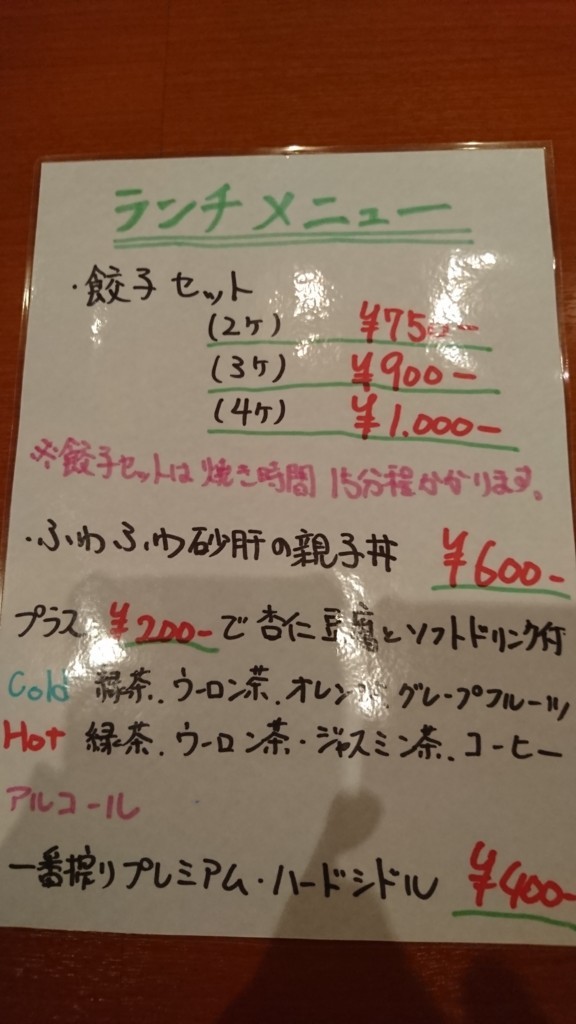 ランチメニュー
・餃子セット
(2ケ) ¥750-
(3ケ) ¥900-
(4ケ) ¥1.000-
※餃子セットは焼き時間15分程かかります。
・ふわふわ砂肝の親子丼 ¥600-
プラス ¥200-で杏仁豆腐とソフトドリンク付
Cold 緑茶.ウーロン茶.オレンジ.グレープフルーツ
Hot 緑茶.ウーロン茶・ジャスミン茶.コーヒー
アルコール
一番搾りプレミアム・ハードシードル ¥400-